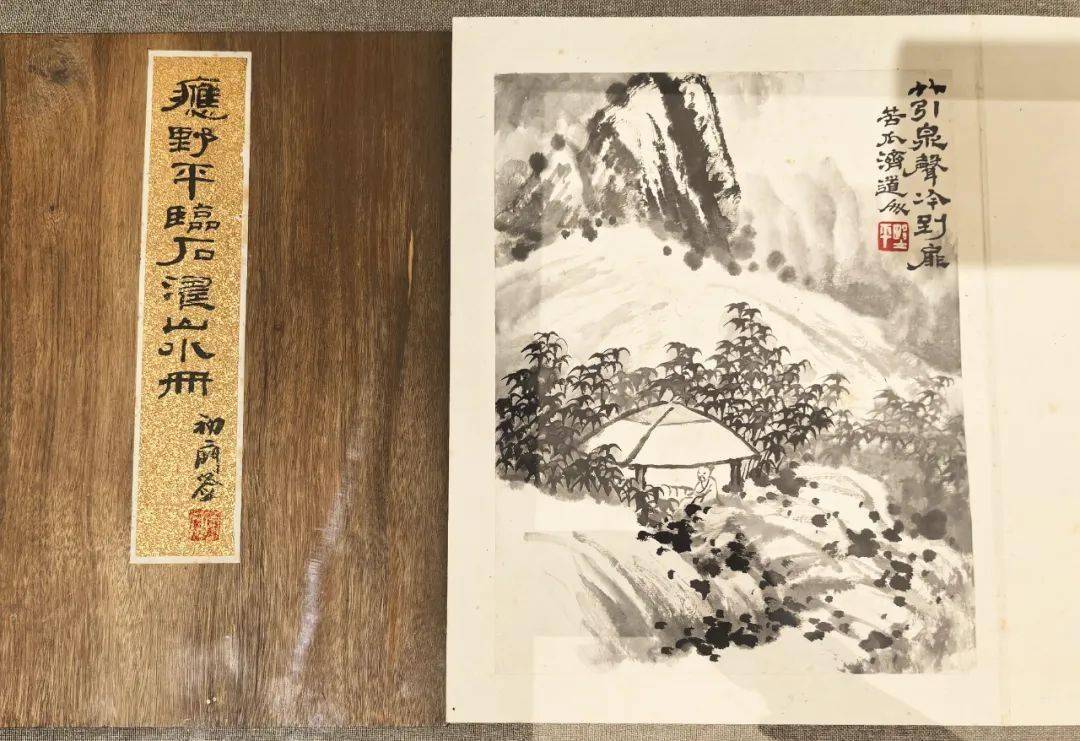 應野平臨石濤山水冊
竹引泉聲冷到扉
苦瓜濟道人
野平